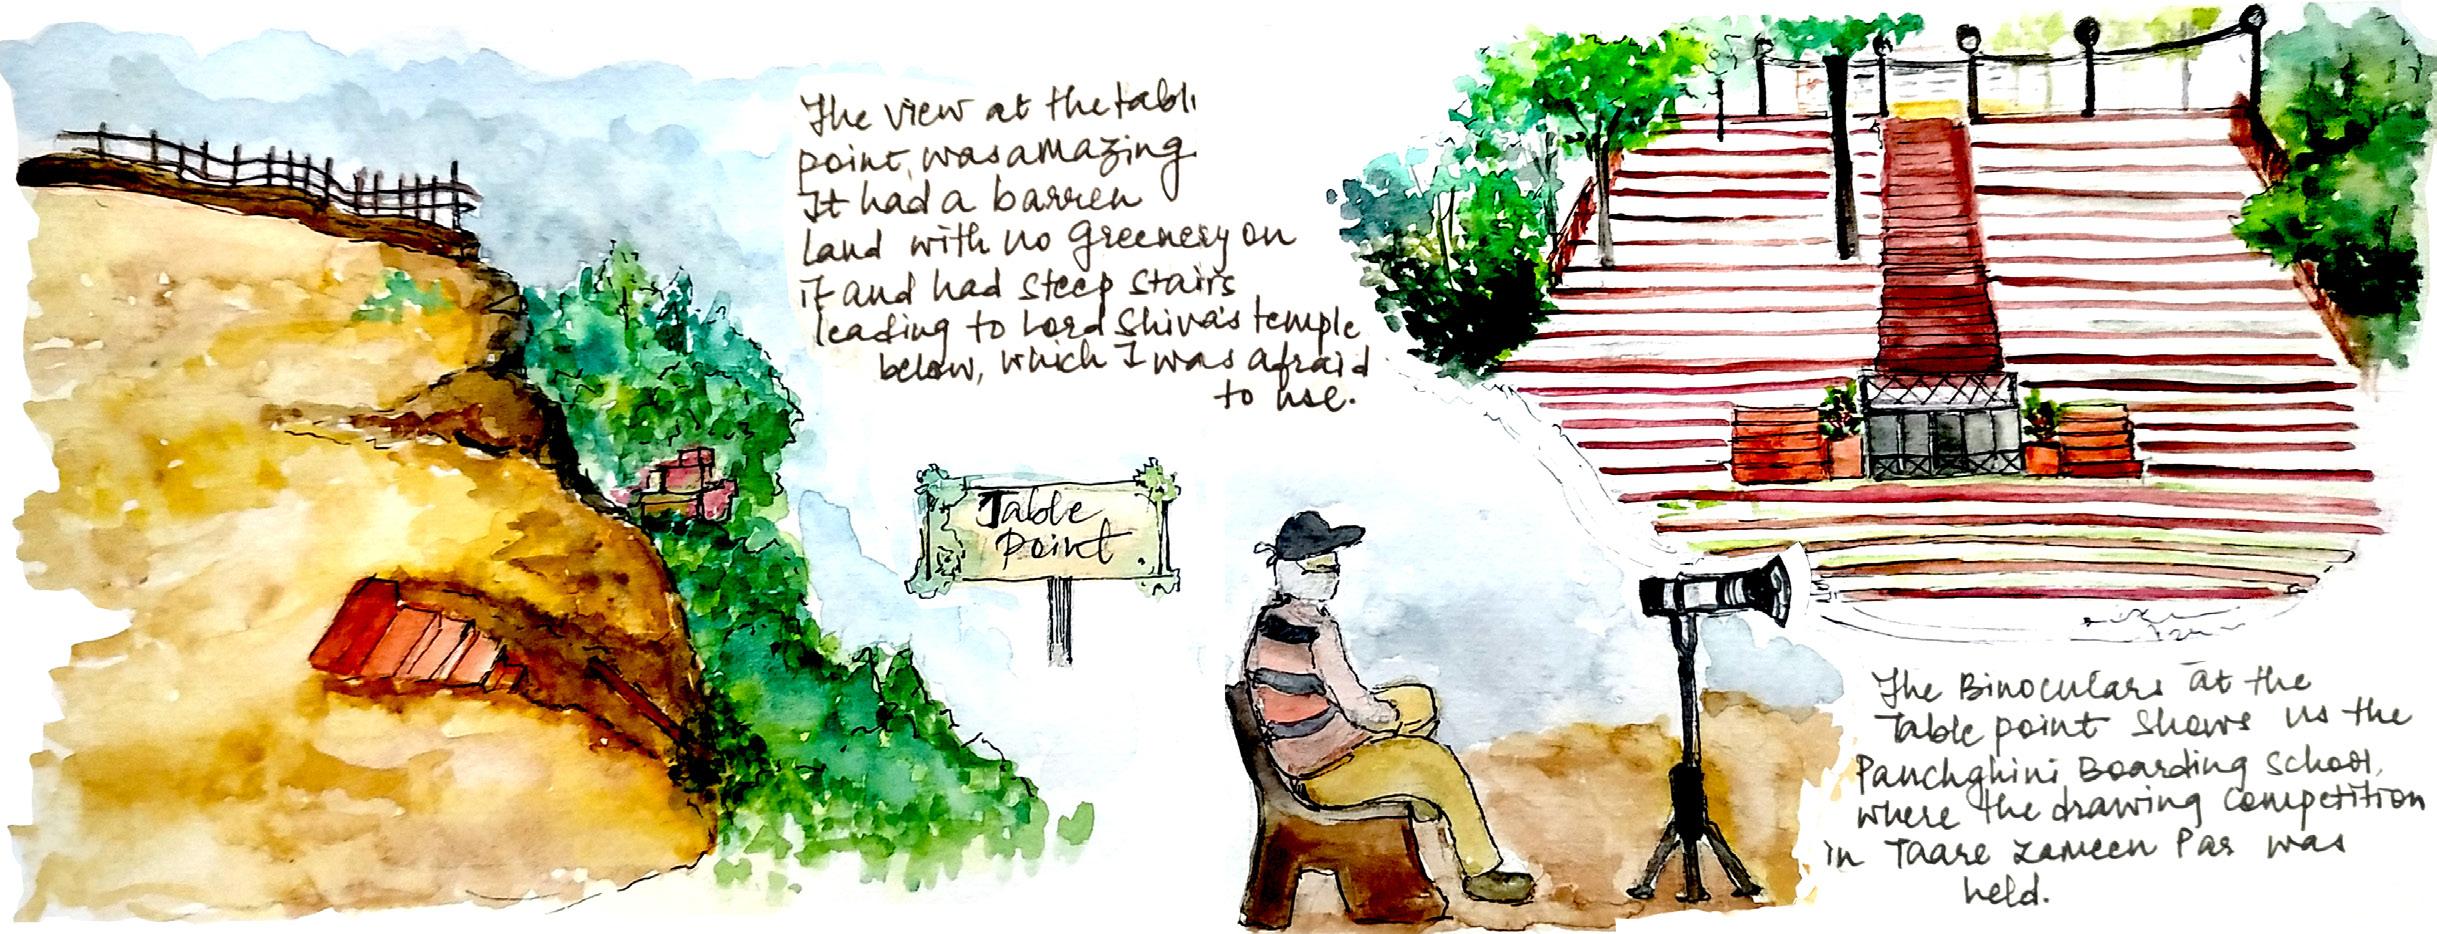 The view at the tabl
point, was amazing.
It had a barren
land with no Greenery on
it and had steep stairs
leading to Lord Shiva's temple
below, which I was afraid
to use.
Table
point
The Binoculars at the
Table point shows us the
Panchghini Boarding School,
where the drawing competition
in Taare Zameen Par was
held.